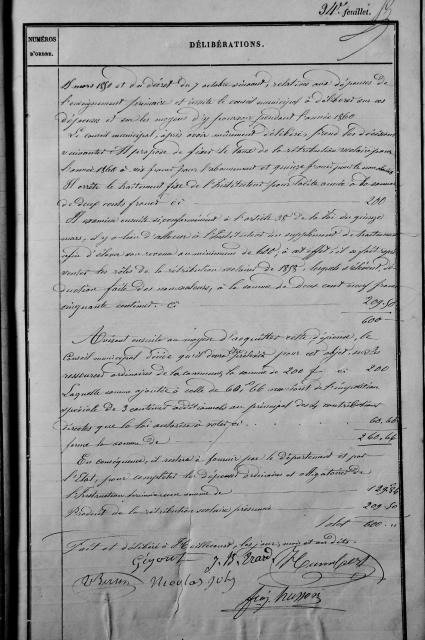 34e feuillet.
NUMÉROS
D'ORDRE.
DÉLIBÉRATIONS.
15 mars 1850 et du décret du 7 octobre suivant, relatifs aux dépenses de
l'enseignement primaire et invite le conseil municipal à délibérer sur ces
dépenses et sur les moyens d'y pourvoir pendant l'année 1860
Le Conseil municipal, après avoir mûrement délibéré, prend les décisions
suivantes. Il propose de fixer le taux de la rétribution scolaire pour
l'année 1860 à six francs pour l'abonnement et quinze francs pour le
Il arrête le traitement fixe de l'Instituteur pour ladite année à la somme
de deux cents francs ci 200
Il examine ensuite si, conformément à l'article 38 de la loi du quinze
mars, il y a lieu d'allouer à l'Instituteur un supplément de traitement
afin d'élever son revenu au minimum de 600f, à cet effet il se fait repré-
senter les rôles de la rétribution scolaire de 1858, lesquels s'élèvent, dé-
duction faite des non valeurs, à la somme de deux cent neuf francs
cinquante centimes. ci 209.50
600
Avisant ensuite au moyen d'acquitter cette dépense, le
Conseil municipal décide qu'il sera prélevé pour cet objet, sur les
ressources ordinaires de la commune, la somme de 200 f ci 200
Laquelle somme ajoutée à celle de 60f 66 montant de l'imposition
spéciale de 3 centimes additionnels au principal des 4 contributions
directes que la loi autorise à voter ci 60.66
forme la somme de 260.66
En conséquence, il restera à fournir par le département et par
l'Etat, pour compléter les dépenses ordinaires et obligatoires de
l'Instruction primaire une somme de 129.84
Produit de la rétribution scolaire présumée 209.50
Total 600 "
Fait et délibéré à les jour, mois et an dits.
J. B. Erard Humbert
Nicolas
Husson